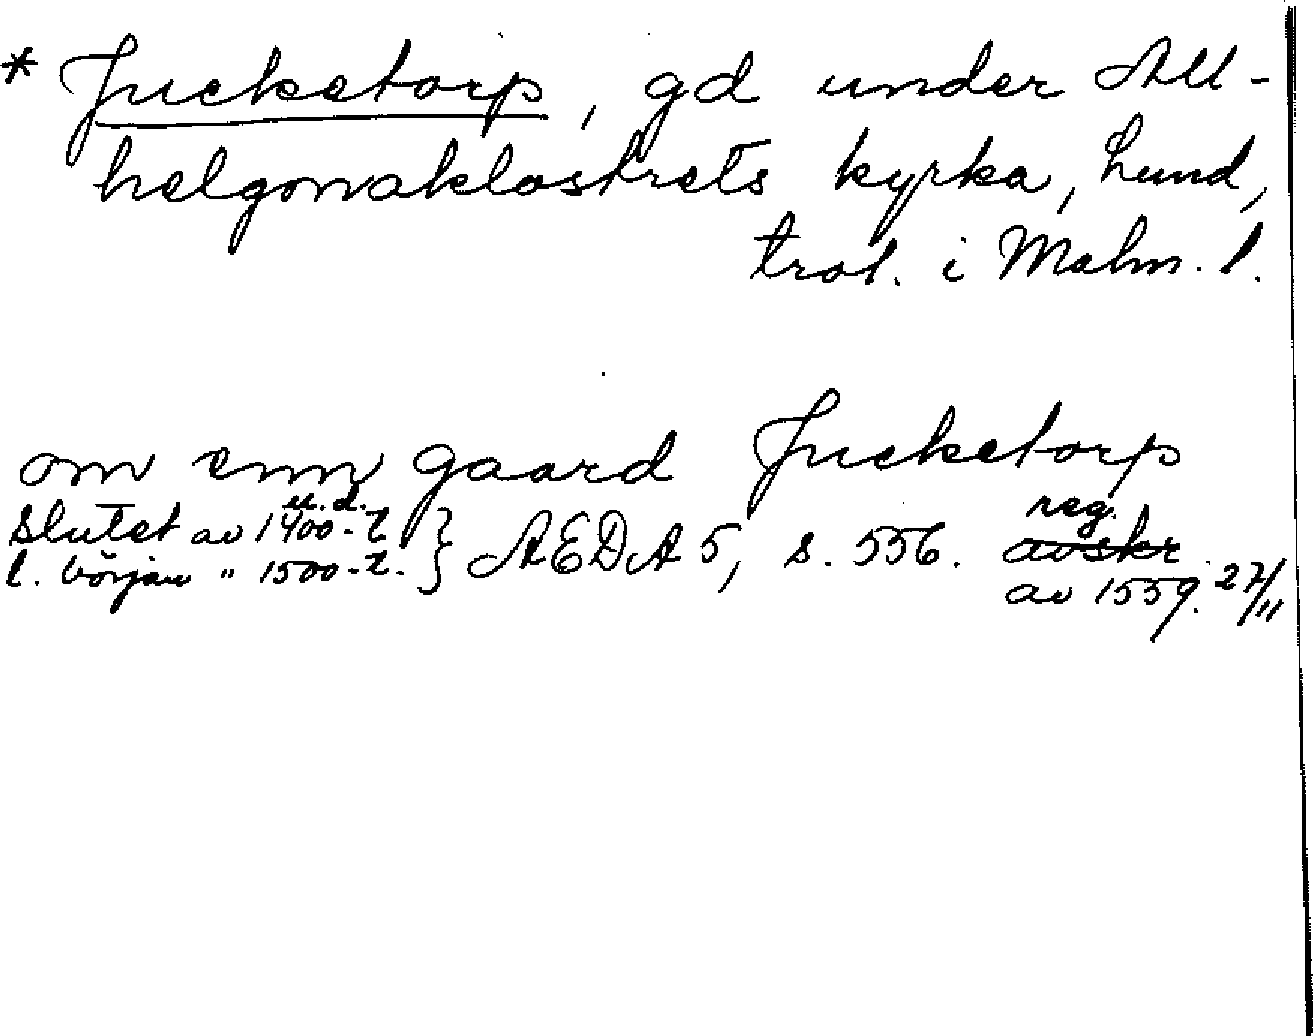 * Jucketorp, gd under All-
helgonaklostrets kyrka, Lund,
trol. i Malm. l.
om enn gaard Jucketorp
u. d.
slutet av 1400-t
l. början " 1500-t. } AEDA 5, s. 556. reg.
avskr.
av 1559. 27/11